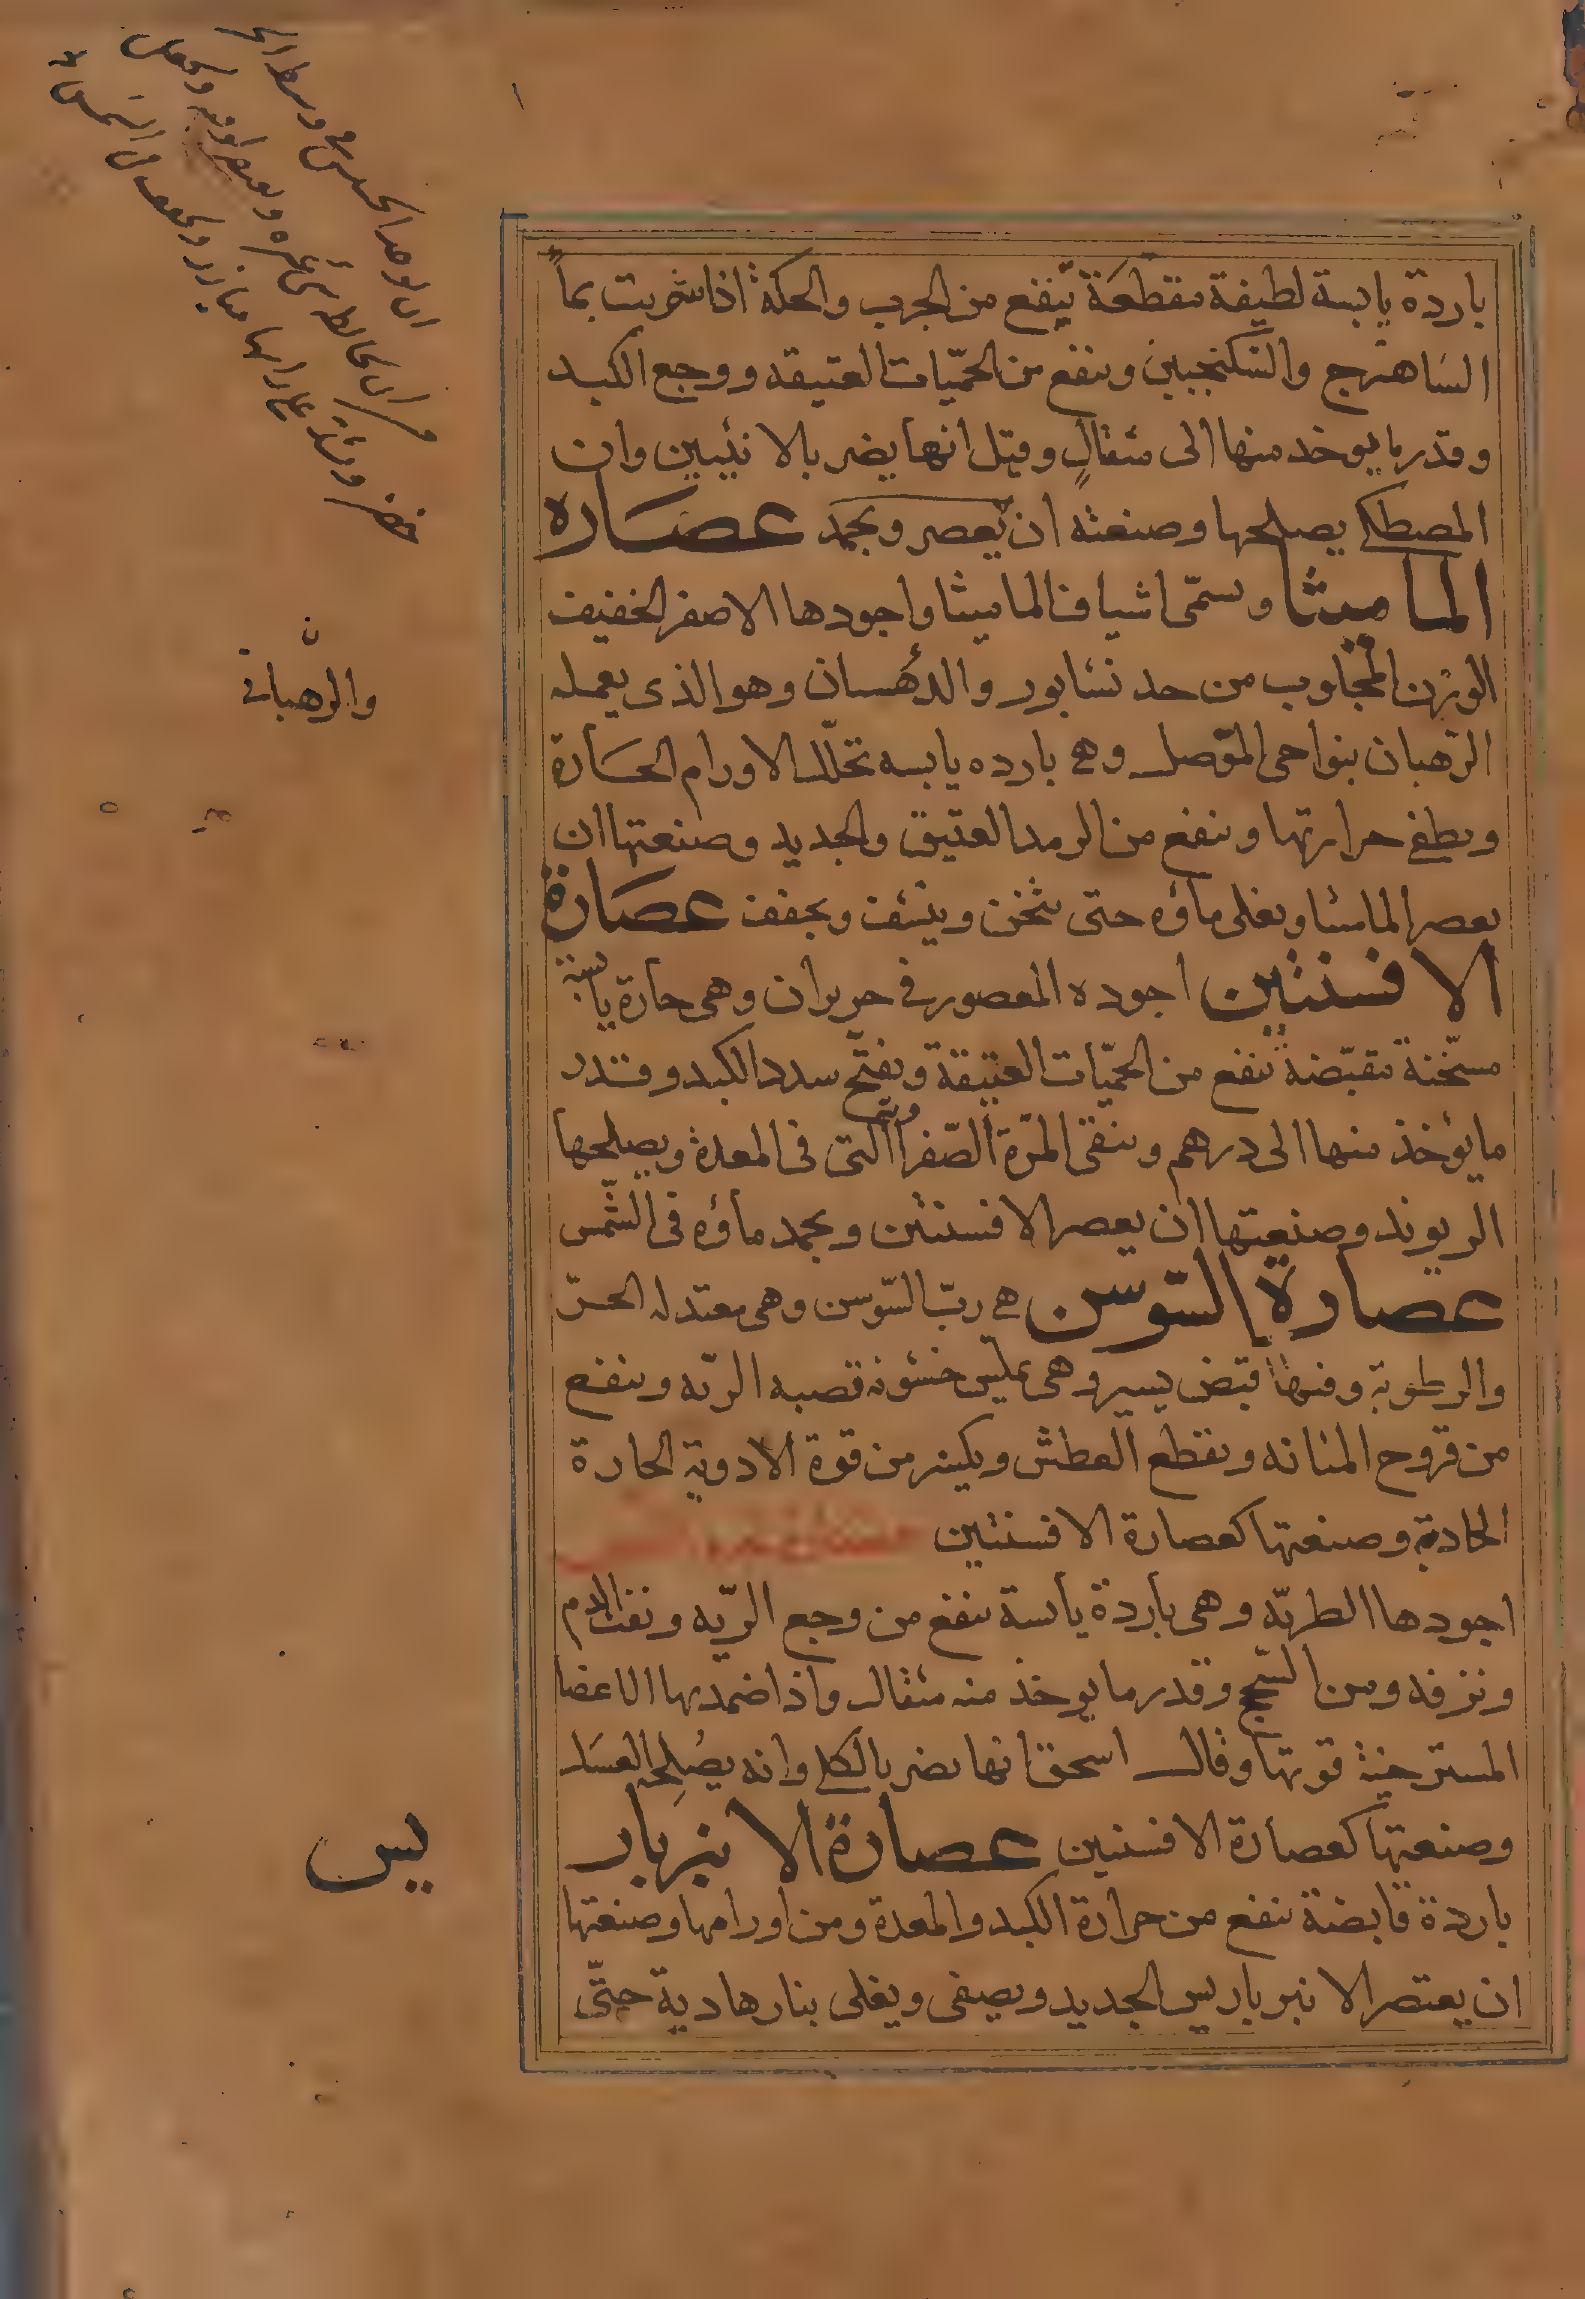 باردة يابسة لطيفة مقطعة ينفع من الجرب والحكة اذا شربت بماً
الشاهترج والسكنجبين وينفع من الحميّات العتيقه ووجع الكبد
وقدر ما يوخد منها الى مثقالٍ وقيل انها يضر بالانثيين وان
المصطكى يصلحها وصنعته ان يعصر ويجمد عصَاره
الماميثا ويسمّى اشياف الماميثا واجودها الاصفر الخفيف
الوزن المجلوب من حد نشابور والدهسان وهو الذى يعمله
الرهبان بنواحى الموصل وهى بارده يابسه تحلّل الاورام الحَارة
ويطفى حرارتها وينفع من الرمد العتيق والجديد وصنعتها ان
يعصر المامىثا ويغلى ماؤه حتى يثخن وينشف ويجفف عصَارة
الافسنثين اجوده المعصور فى حزيران وهى حارة يابسة
مسخّنة مقبّضة تنفع من الحميّات العتيقة ويفتّح سدد الكبد وقدر
ما يؤخذ منها الى درهم وينقى المرّة الصّفرا التى فى المعدة ويصلحها
الريوند وصنعتها ان يعصر الافسنتين ويجمد ماؤه فى الشّمس
عصارة السّوسن هى ربّ السّوسن وهى معتدله الحرّ
والرطوبة وفيها قبض يسير وهى تملس خشونة قصبه الريه وينفع
من قروح المثانه ويقطع العطش ويكسر من قوة الادوية الحارة
الحادة وصنعتها كعصارة الافسنتين
اجودها الطريّه وهى باردة يابسة ينفع من وجع الريّه ونفث الدم
ونزفه ومن السّحج وقدر ما يوخذ منه مثقال واذا ضمد بها الاعضا
المسترخية قوتها وقال اسحق انها يضر بالكلى وانه يصُلحه العسَل
وصنعتها كعصارة الافسنتين عصارة الانبربار
يس
باردة قابضة تنفع من حرارة الكبد والمعدة ومن اورامها وصنعتها
ان يعتصر الانبرباريس الجديد ويصفى ويغلى بنار هادية حتّى
والرهبان